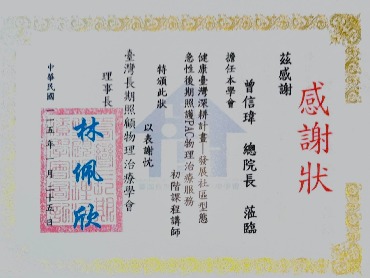 感謝狀
茲感謝
曾信瑋 總院長 蒞臨
擔任本學會
健康臺灣深耕計畫—發展社區型態
急性後期照護PAC物理治療服務
初階課程講師
特頒此狀
以表謝忱
臺灣長期照顧物理治療學會
理事長
林佩欣
中華民國一一五年一月二十五日